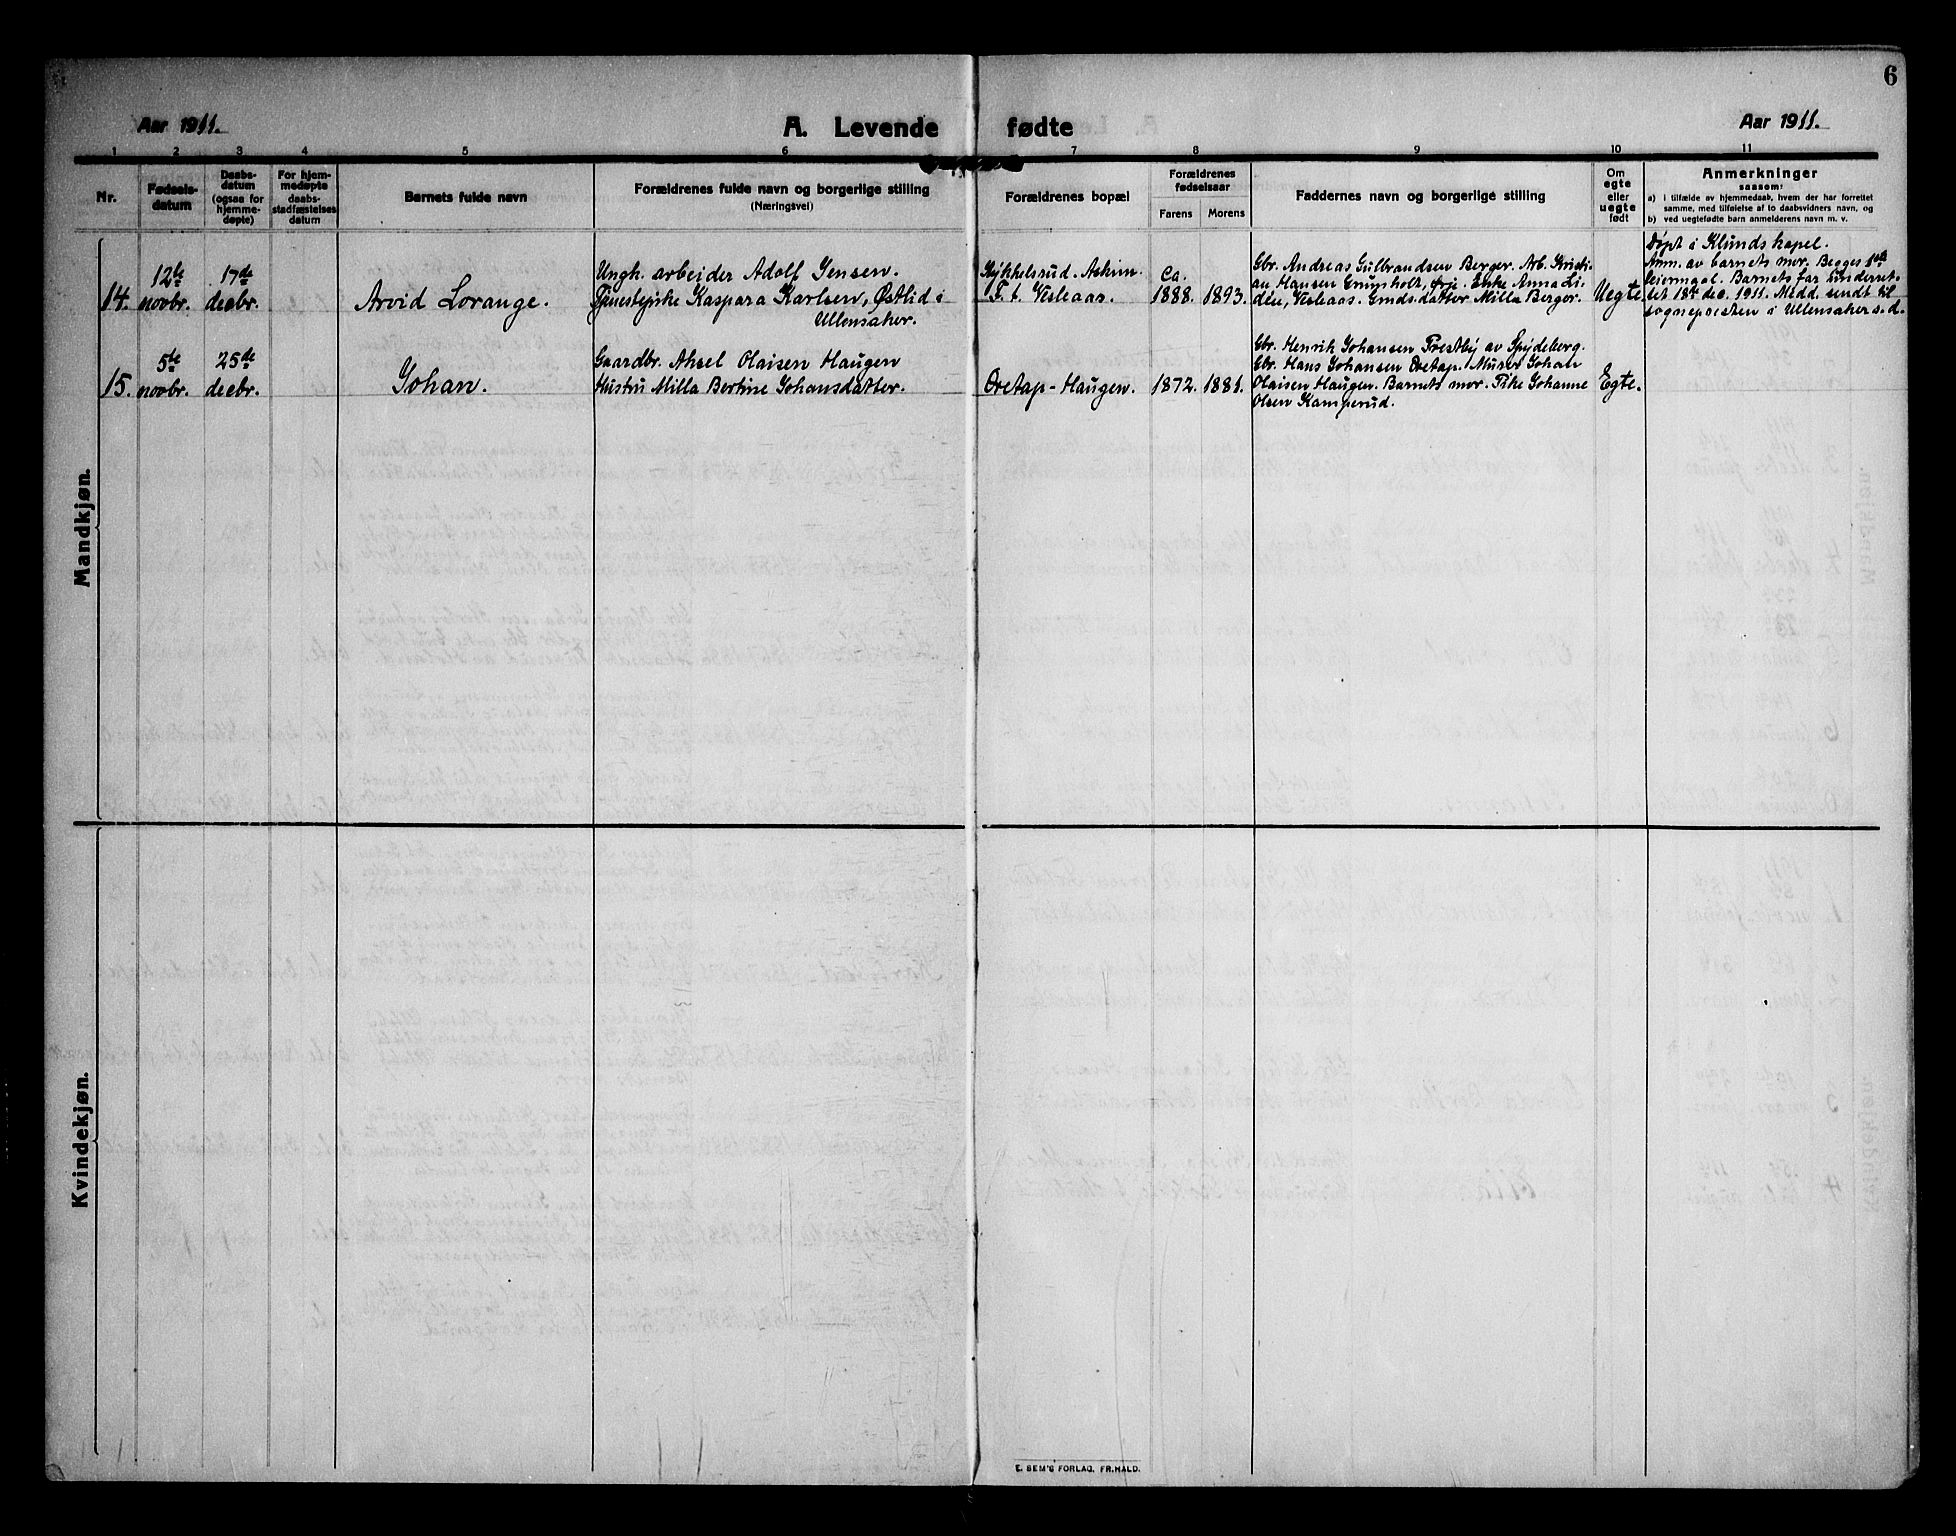 6
Aar 1911.
A. Levende fødte
Aar 1911.
1 2 3 4 5 6 7 8 9 10 11
Nr.
Fødsels-
datum
Daabs-
datum
(ogsaa for
hjemme-
døpte)
For hjem-
medøpte
daabs-
stadfæstelses
datum
Barnets fulde navn
Forældrenes fulde navn og borgerlige stilling
(Næringsvei)
Forældrenes bopæl
Forældrenes
fødselsaar
Farens Morens
Faddernes navn og borgerlige stilling
Om
egte
eller
uegte
født
Anmerkninger
saasom:
a) i tilfælde av hjemmedaab, hvem der har forrettet
samme, med tilføielse af to daabsvidners navn, og
b) ved uegtefødte børn anmelderens navn m. v.
Mandkjøn.
14.
12te
novbr.
17de
decbr.
Arvid Lorange.
Ungk. arbeider Adolf Jensen.
Tjenestepike Kaspara Karlsen, Østlid i
Ullensaker.
Kykkelsrud. Askim.
F. t. Vesleaas.
ca.
1888. 1893.
Gbr. Andreas Gulbrandsen Berger. Arb. Kristi-
an Hansen Grimholt, Ørje. Enke Anna Li-
die, Vesleaas. Gmds.datter Milla Berger.
Uegte
Døpt i Klunds kapel.
Anm. av barnets mor. Begges 1ste
leiermaal. Barnets far underret-
tet 18de dec. 1911. Medd. sendt til
sognepresten i Ullensaker s. d.
15.
5te
novbr.
25de
decbr.
Johan.
Gaardbr. Aksel Olaisen Haugen
Hustru Milla Bertine Johansdatter.
Oretap-Haugen.
1872. 1881.
Gbr. Henrik Johansen Prestby av Spydeberg.
Gbr. Hans Johansen Oretap. Murer Johan
Olaisen Haugen. Barnets mor. Pike Johanne
Olsen Kamperud.
Egte.
Kvindekjøn.
E. SEM'S FORLAG, FR.HALD.